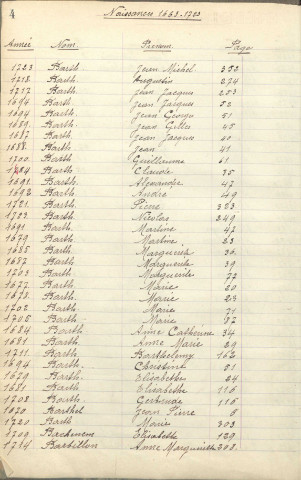 4
Naissances 1663-1723
Année Nom Prénom Page
1723 Barth Jean Michel 352
1718 Barth Augustin 274
1717 Barth Jean Jacques 253
1694 Barth Jean Jacques 52
1694 Barth Jean George 51
1689 Barth Jean Gilles 45
1687 Barth Jean Jacques 50
1688 Barth Jean 41
1700 Barth Guillaume 61
1684 Barth Claude 35
1691 Barth Alexandre 47
1692 Barth André 49
1721 Barth Pierre 323
1723 Barth Nicolas 349
1691 Barth Martine 47
1679 Barth Martine 23
1685 Barth Marguerite 36
1687 Barth Marguerite 39
1703 Barth Marguerite 72
1677 Barth Marie 20
1678 Barth Marie 23
1702 Barth Marie 71
1705 Barth Marie 92
1684 Barth Anne Catherine 34
1681 Barth Anne Marie 29
1711 Barth Barthelemy 162
1694 Barth Christine 51
1679 Barth Elisabethe 24
1681 Barth Elisabethe 116
1708 Barth Gertrude 116
1670 Barthel Jean Pierre 6
1720 Barth Marie 303
1709 Elisabethe 129
1714 Barbillon Anne Marguerite 208